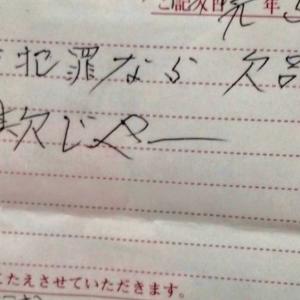 ご記入日 元 年 5
犯罪なら 欠
欠じゃー
たえさせていただきます。